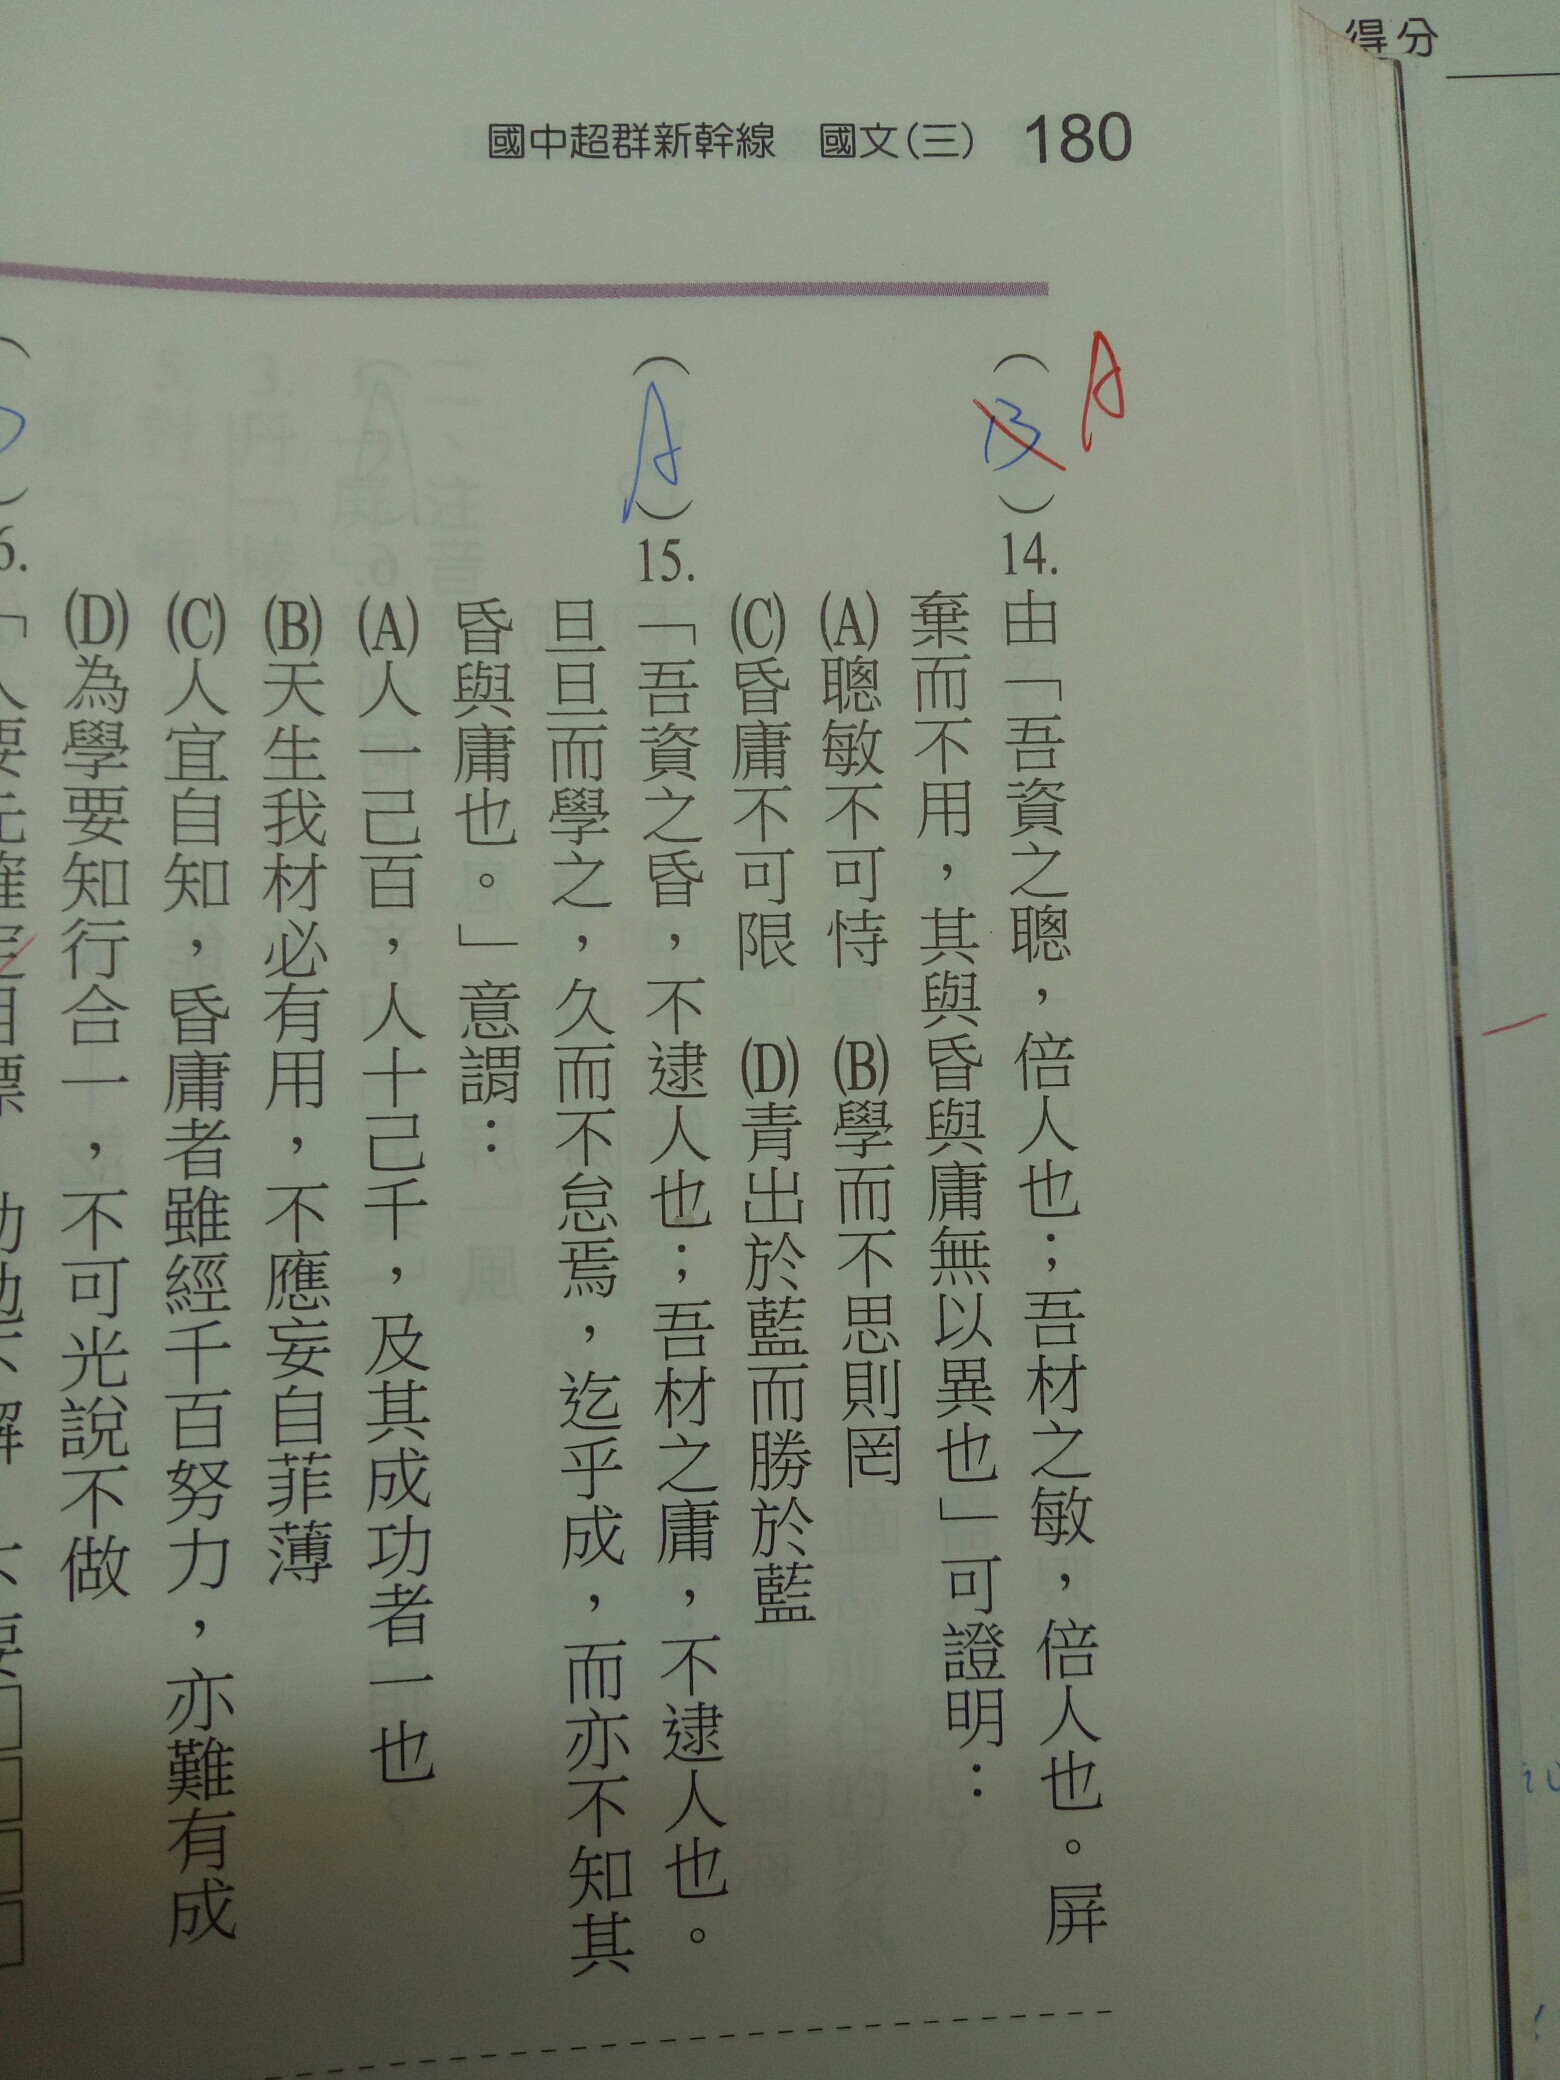 得分
國中超群新幹線 國文(三) 180
A
(B)14.由「吾資之聰,倍人也;吾材之敏,倍人也。屏
棄而不用,其與昏與庸無以異也」可證明:
(A)聰敏不可恃 (B)學而不思則罔
(C)昏庸不可限 (D)青出於藍而勝於藍
(A)15.「吾資之昏,不逮人也;吾材之庸,不逮人也。
旦旦而學之,久而不怠焉,迄乎成,而亦不知其
昏與庸也。」意謂:
(A)人一己百,人十己千,及其成功者一也
(B)天生我材必有用,不應妄自菲薄
(C)人宜自知,昏庸者雖經千百努力,亦難有成
(D)為學要知行合一,不可光說不做